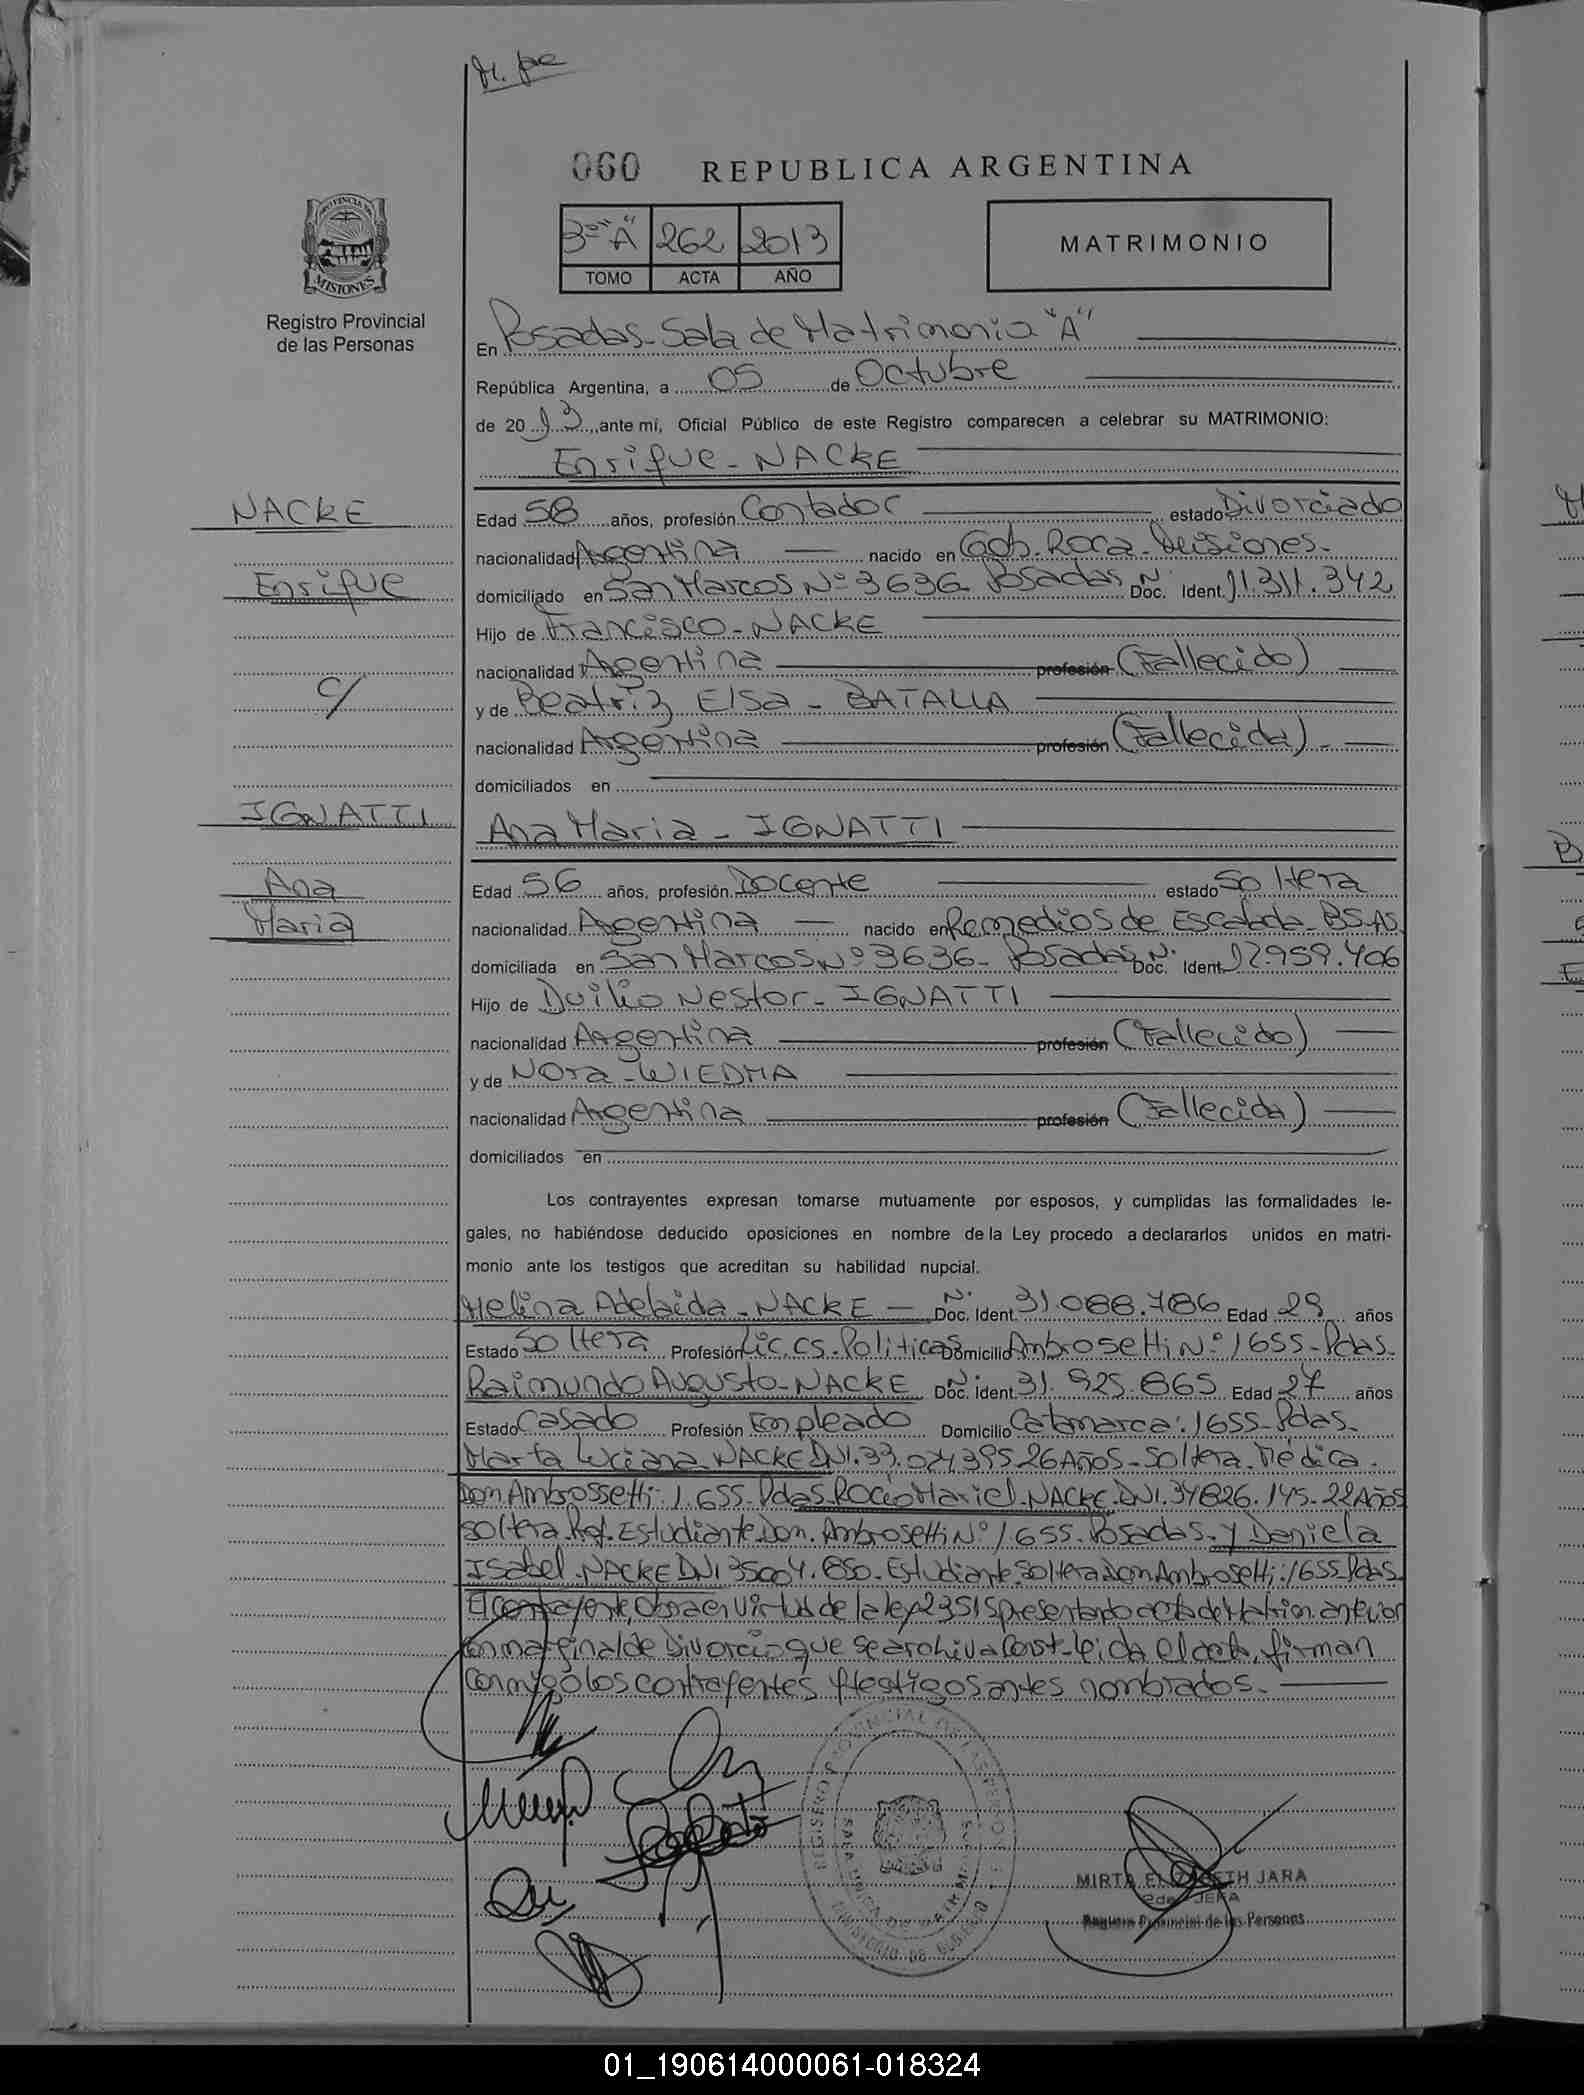 060 REPUBLICA ARGENTINA
PROVINCIA DE
MISIONES
Registro Provincial
de las Personas
3º "A" 262 2013
TOMO ACTA AÑO
MATRIMONIO
En Posadas - Sala de Matrimonio "A"
República Argentina, a 05 de Octubre
de 2013, ante mí, Oficial Público de este Registro comparecen a celebrar su MATRIMONIO:
Enrique - NACKE
NACKE
Enrique
c/
IGNATTI
Ana
Maria
Edad 58 años, profesión Contador estado Divorciado
nacionalidad Argentina nacido en Gob. Roca - Misiones.
domiciliado en San Marcos Nº 3636 - Posadas Nº Doc. Ident. 11.311.342
Hijo de Francisco - NACKE
nacionalidad Argentina profesión (Fallecido)
y de Beatriz Elsa - BATALLA
nacionalidad Argentina profesión (Fallecida) -
domiciliados en
Ana Maria - IGNATTI
Edad 56 años, profesión Docente estado Soltera
nacionalidad Argentina nacido en Remedios de Escalada - BS.AS.
domiciliada en San Marcos Nº 3636 - Posadas N. Doc. Ident. 12.959.406
Hijo de Duilio Nestor - IGNATTI
nacionalidad Argentina profesión (Fallecido)
y de Nora - WIEDMA
nacionalidad Argentina profesión (Fallecida)
domiciliados en
Los contrayentes expresan tomarse mutuamente por esposos, y cumplidas las formalidades le-
gales, no habiéndose deducido oposiciones en nombre de la Ley procedo a declararlos unidos en matri-
monio ante los testigos que acreditan su habilidad nupcial.
Melina Adelaida - NACKE - N. Doc. Ident. 31.088.786 Edad 29 años
Estado Soltera Profesión Lic. Cs. Politicas Domicilio Ambrosetti Nº 1655 - Pdas.
Raimundo Augusto - NACKE N. Doc. Ident. 31.925.865 Edad 27 años
Estado Casado Profesión Empleado Domicilio Catamarca: 1655 - Pdas.
Marta Luciana NACKE DNI. 33.074395 26 Años - Soltera. Médica.
Dom Ambrossetti: 1.655 - Pdas Rocio Mariel - NACKE. DNI. 34826.145 - 22 Años
Soltera. Prof. Estudiante Dom. Ambrosetti Nº 1655. Posadas - y Daniela
Isabel - NACKE DNI 35004.850 - Estudiante. Soltera Dom Ambrosetti: 1655 Pdas
El contrayente, Obra en virtud de la ley 23515 presentando acta de Matrim. anterior
con marginal de Divorcio que se archiva Const. leida el acta, firman
conmigo los contrayentes y testigos antes nombrados. -
REGISTRO PROVINCIAL DE LAS PERSONAS
MINISTERIO DE GOBIERNO
MIRTA ELIZABETH JARA
2da JEFA
Registro Provincial de las Personas
01_190614000061-018324